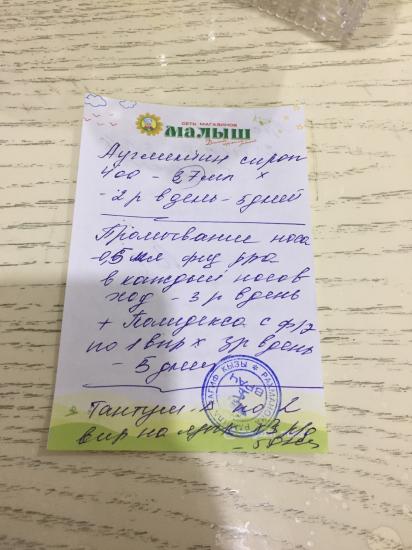 СЕТЬ МАГАЗИНОВ
МАЛЫШ
Аугментин сироп
400 - 37мл х
- 2 р в день - 5 дней
Промывание носа
-0,5 мл
в каждый носов
ход - 3 р в день
+ Полидекса с ф/э
по 1 впр х 3 р в день
- 5 дней
ВРАЧ
КЫЗЫ
Тантум
впр на